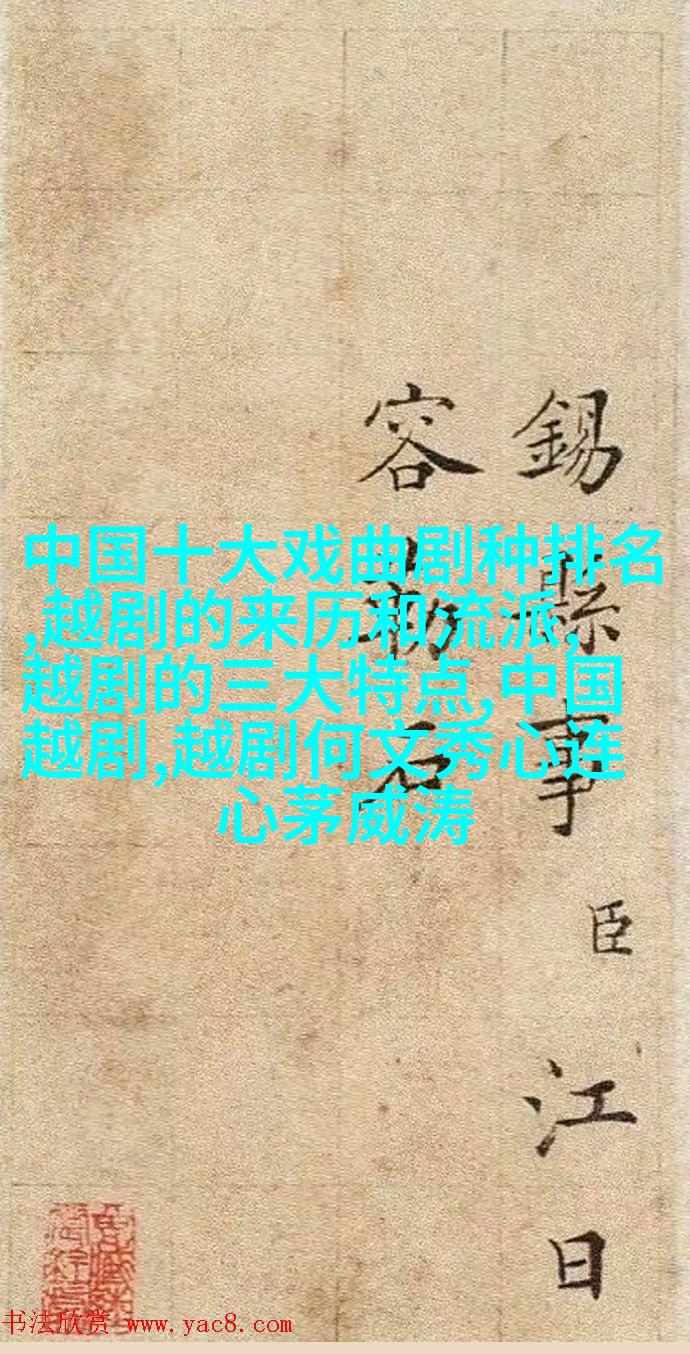 中国十大戏曲剧种排名
,越剧的来历和流派,
越剧的三大特点,中国
越剧,越剧何文秀心连
心茅威涛
錫縣事臣江日
容
书法欣赏 www.yac8.com